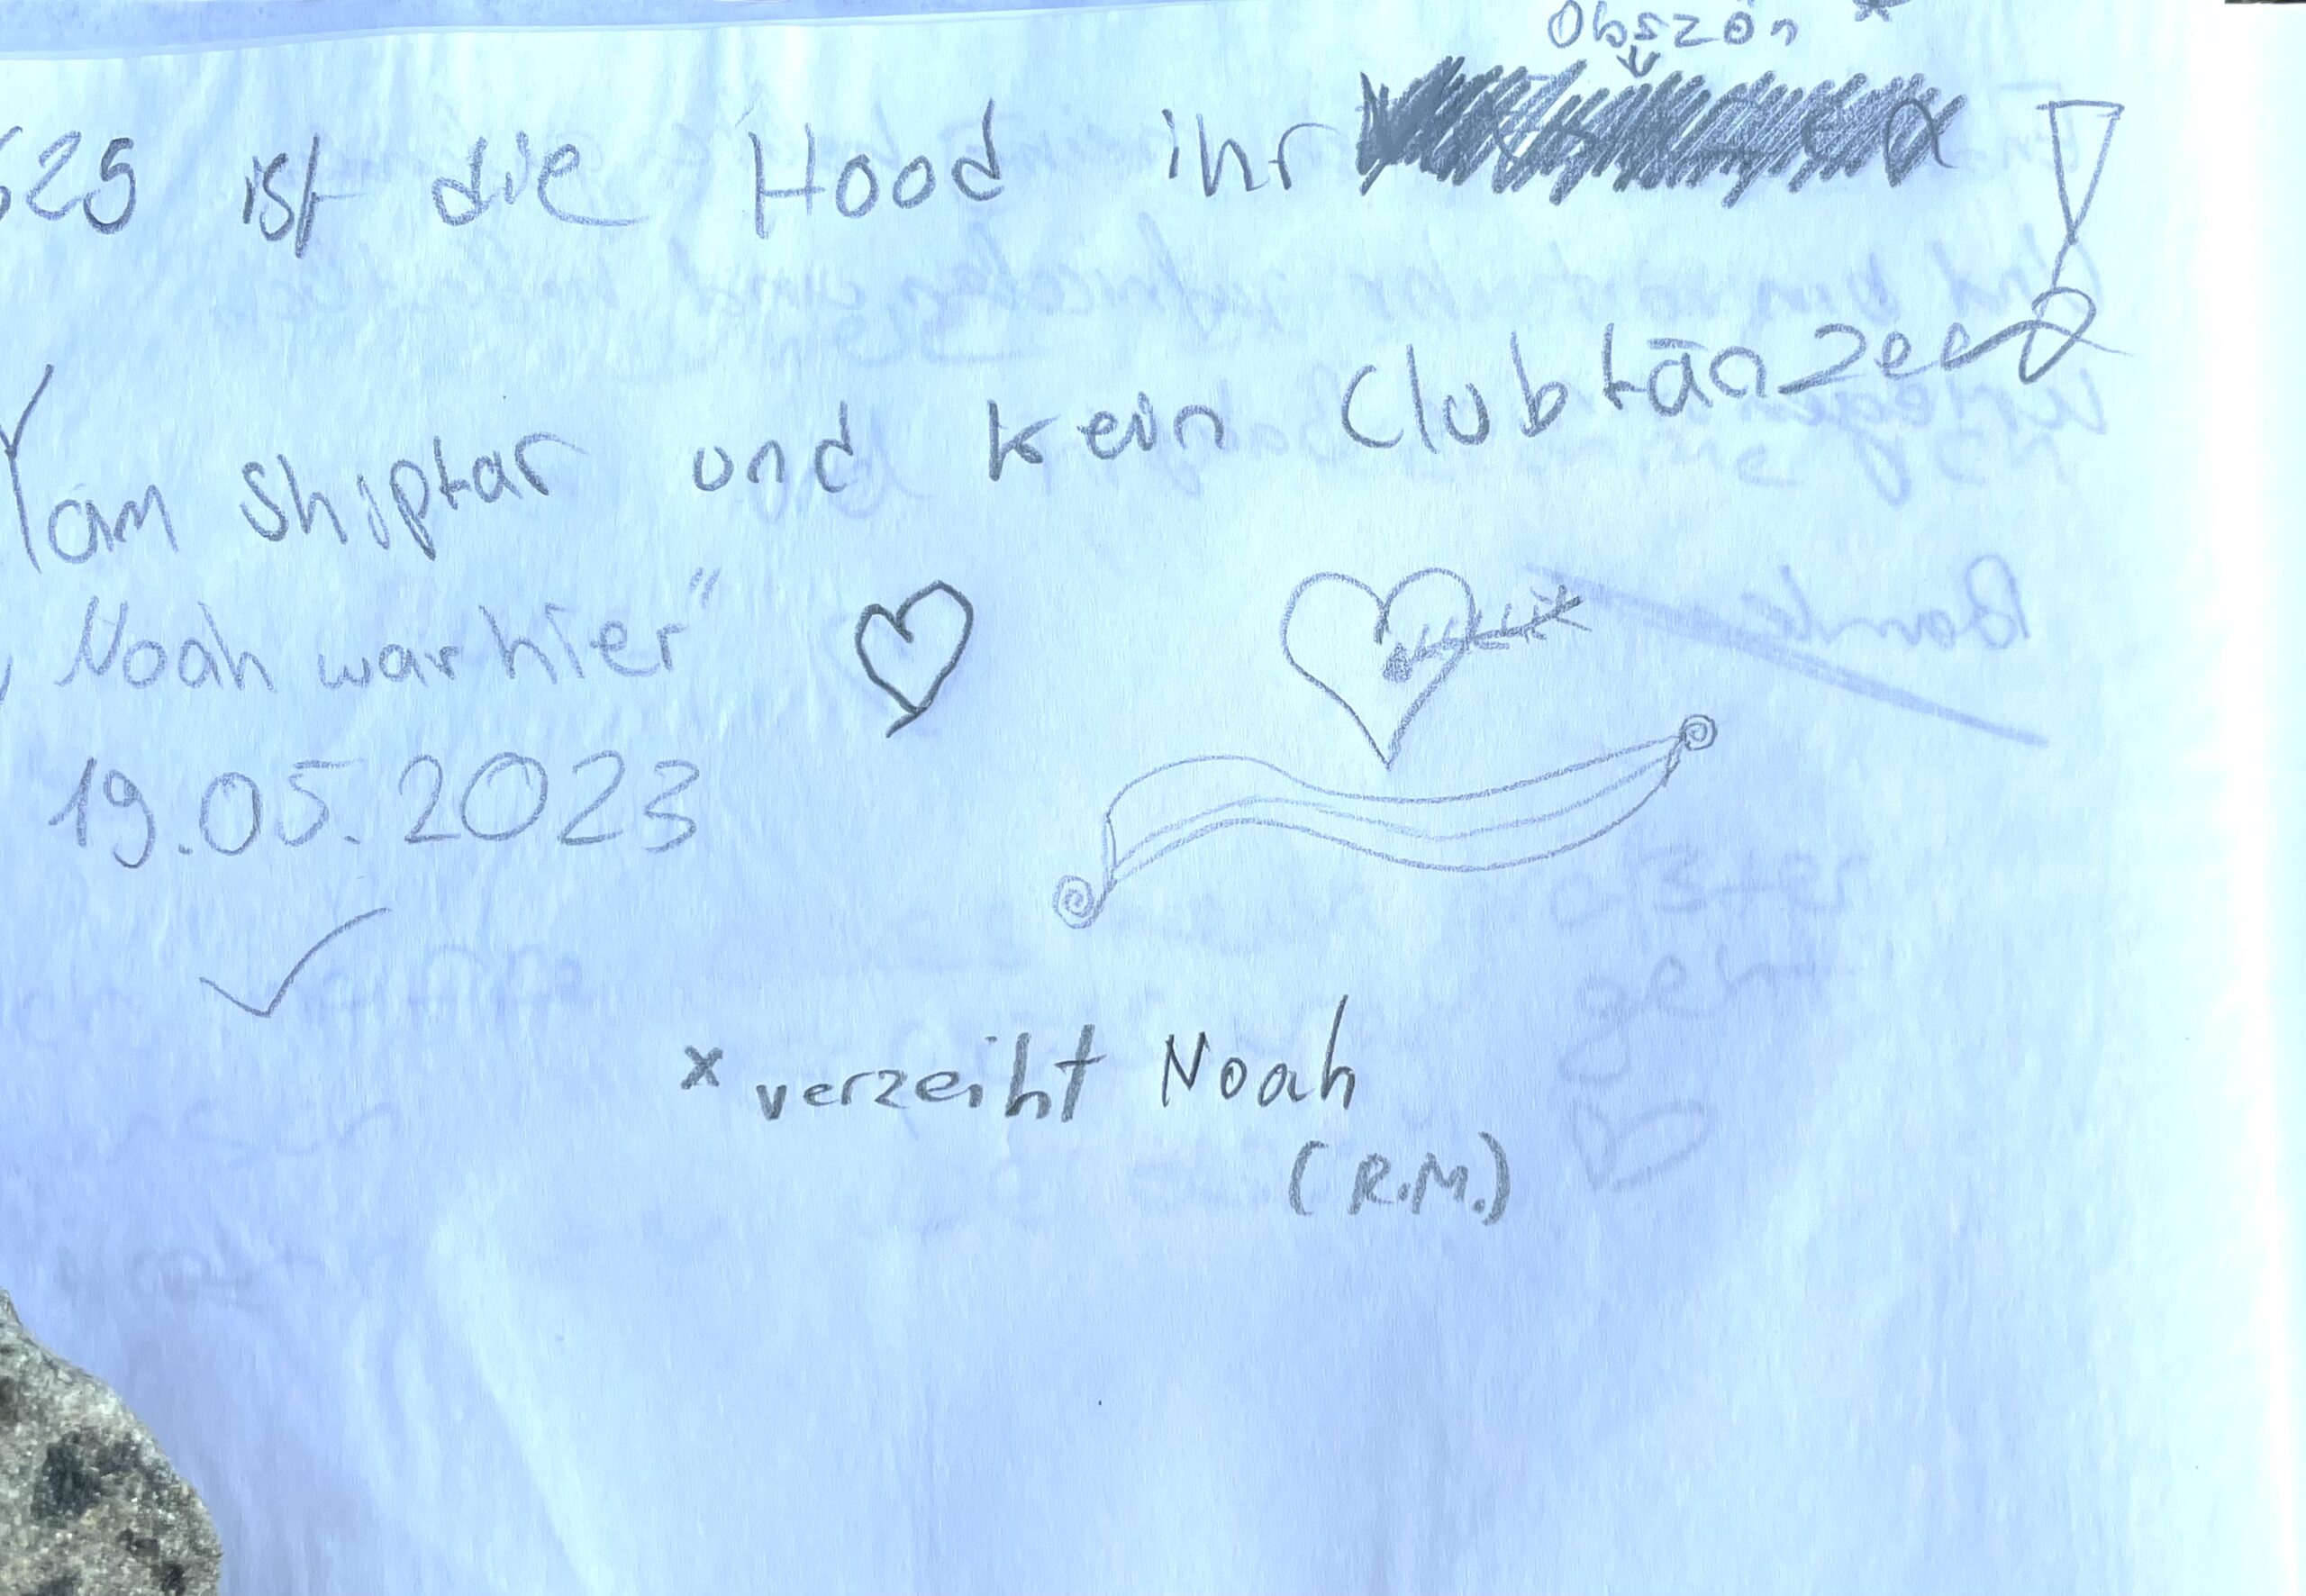 Obszön *
629 ist die Hood ihr
Yam shiptar und kein Clubtänzer
„Noah war hier"
19.05.2023
* verzeiht Noah
(R.M.)